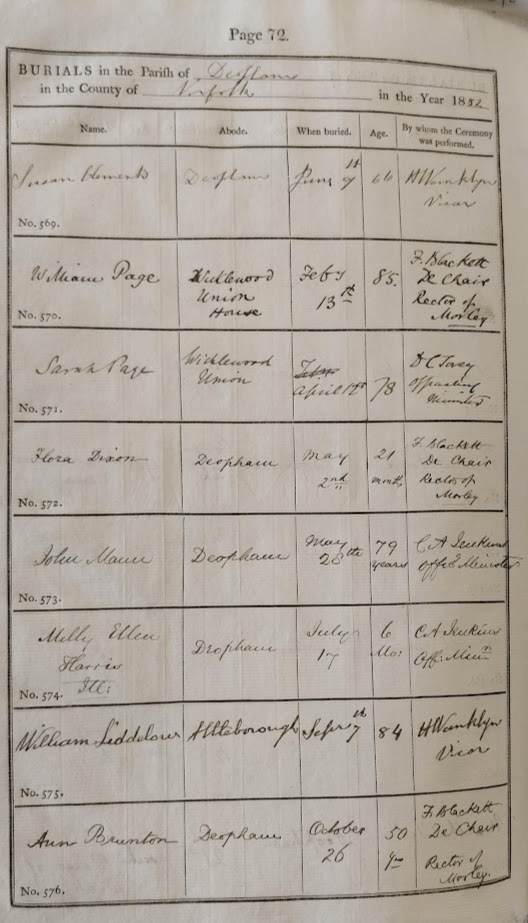 Page 72.
BURIALS in the Parish of Deopham
in the County of Norfolk in the Year 1852
Name. Abode. When buried. Age. By whom the Ceremony was performed.
Susan Clements Deopham June 9th 66 H Wanklyn
Vicar
No. 569.
William Page Wicklewood Feby 85. F. Blackett
Union 13th De Chair
House Rector of
No. 570. Morley
Sarah Page Wicklewood
Union April 12th 78 Officiating
Minister
No. 571.
Flora Dixon Deopham May 21 F. Blackett
2nd months De Chair
Rector of
No. 572. Morley
John Mann Deopham May 79 C A Jenkins
28th years Offg Minister
No. 573.
Milly Ellen Deopham July 6 C A Jenkins
Harris 17 Mo: Off: Minr
No. 574. Ill:
William Liddelow Attleborough Sepr 7th 84 H Wanklyn
Vicar
No. 575.
Ann Brunton Deopham October 50 F. Blackett
26 De Chair
Rector of
No. 576. Morley.